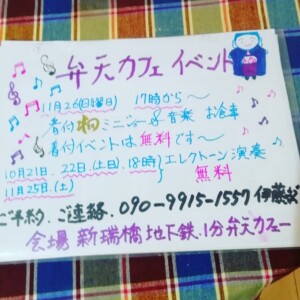 弁天カフェイベント
11月26(日曜日) 17時から〜
着付 ミニ 音楽 お食事
着付イベントは無料です〜
10月21日、22日(土日)、18時
11月25日、(土)
エレクトーン演奏
無料
ご予約、ご連絡、090-9915-1557 伊藤
会場 新瑞橋地下鉄、1分弁天カフェー